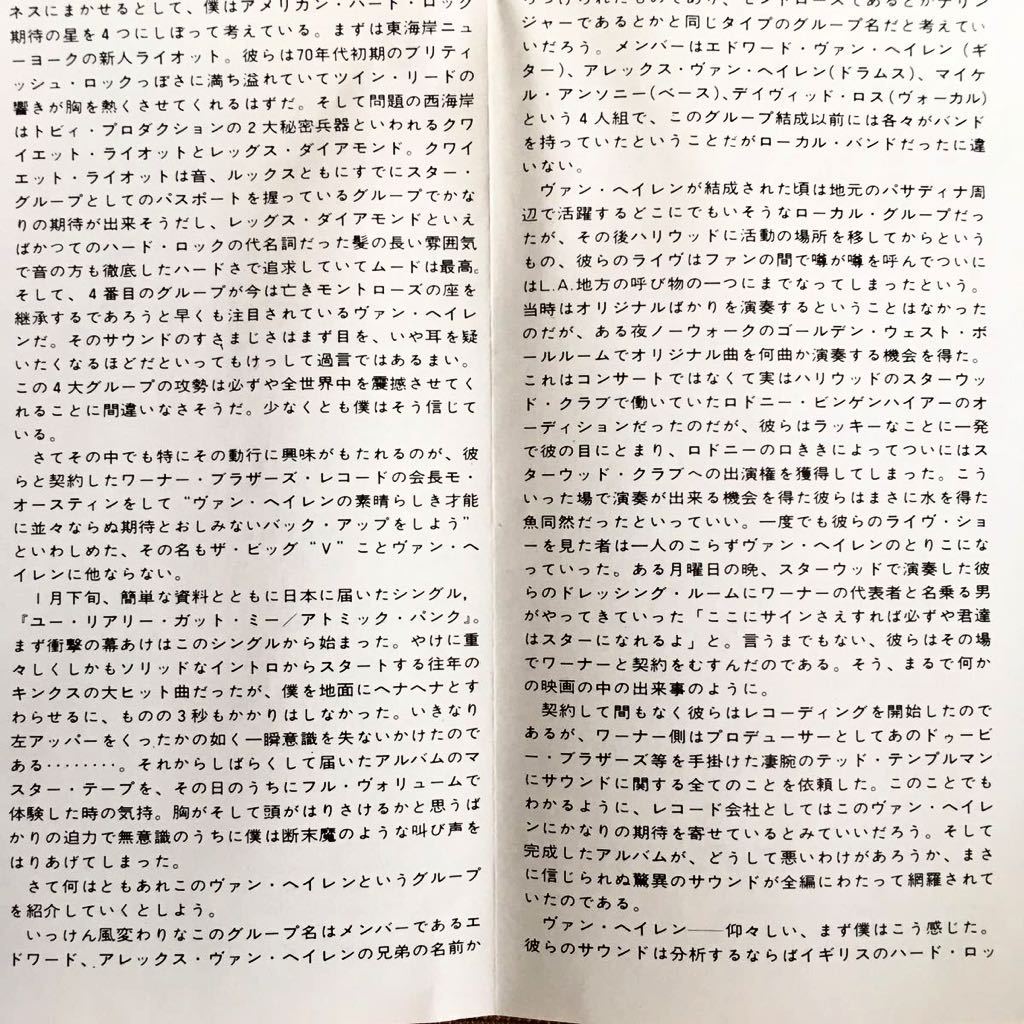 ネスにまかせるとして、僕はアメリカン・ハード・ロック
期待の星を4つにしぼって考えている。まずは東海岸ニュ
ーヨークの新人ライオット。彼らは70年代初期のブリティ
ッシュ・ロックっぽさに満ち溢れていてツイン・リードの
響きが胸を熱くさせてくれるはずだ。そして問題の西海岸
はトビィ・プロダクションの2大秘密兵器といわれるクワ
イエット・ライオットとレッグス・ダイアモンド。クワイ
エット・ライオットは音、ルックスともにすでにスター・
グループとしてのパスポートを握っているグループでかな
りの期待が出来そうだし、レッグス・ダイアモンドといえ
ばかつてのハード・ロックの代名詞だった髪の長い雰囲気
で音の方も徹底したハードさで追求していてムードは最高。
そして、4番目のグループが今は亡きモントローズの座を
継承するであろうと早くも注目されているヴァン・ヘイレ
ンだ。そのサウンドのすさまじさはまず目を、いや耳を疑
いたくなるほどだといってもけっして過言ではあるまい。
この4大グループの攻勢は必ずや全世界中を震撼させてく
れることに間違いなさそうだ。少なくとも僕はそう信じて
いる。
さてその中でも特にその動行に興味がもたれるのが、彼
らと契約したワーナー・ブラザーズ・レコードの会長モ・
オースティンをして“ヴァン・ヘイレンの素晴らしき才能
に並々ならぬ期待とおしみないバック・アップをしよう”
といわしめた、その名もザ・ビッグ“V”ことヴァン・ヘ
イレンに他ならない。
1月下旬、簡単な資料とともに日本に届いたシングル,
『ユー・リアリー・ガット・ミー／アトミック・パンク』。
まず衝撃の幕あけはこのシングルから始まった。やけに重
々しくしかもソリッドなイントロからスタートする往年の
キンクスの大ヒット曲だったが、僕を地面にヘナヘナとす
わらせるに、ものの3秒もかかりはしなかった。いきなり
左アッパーをくったかの如く一瞬意識を失ないかけたので
ある………。それからしばらくして届いたアルバムのマ
スター・テープを、その日のうちにフル・ヴォリュームで
体験した時の気持。胸がそして頭がはりさけるかと思うば
かりの迫力で無意識のうちに僕は断末魔のような叫び声を
はりあげてしまった。
さて何はともあれこのヴァン・ヘイレンというグループ
を紹介していくとしよう。
いっけん風変わりなこのグループ名はメンバーであるエ
ドワード、アレックス・ヴァン・ヘイレンの兄弟の名前か
ジャーであるとかと同じタイプのグループ名だと考えてい
いだろう。メンバーはエドワード・ヴァン・ヘイレン（ギ
ター）、アレックス・ヴァン・ヘイレン(ドラムス)、マイケ
ル・アンソニー(ベース)、デイヴィッド・ロス(ヴォーカル)
という4人組で、このグループ結成以前には各々がバンド
を持っていたということだがローカル・バンドだったに違
いない。
ヴァン・ヘイレンが結成された頃は地元のパサディナ周
辺で活躍するどこにでもいそうなローカル・グループだっ
たが、その後ハリウッドに活動の場所を移してからという
もの、彼らのライヴはファンの間で噂が噂を呼んでついに
はL.A.地方の呼び物の一つにまでなってしまったという。
当時はオリジナルばかりを演奏するということはなかった
のだが、ある夜ノーウォークのゴールデン・ウェスト・ボ
ールルームでオリジナル曲を何曲か演奏する機会を得た。
これはコンサートではなくて実はハリウッドのスターウッ
ド・クラブで働いていたロドニー・ビンゲンハイアーのオ
ーディションだったのだが、彼らはラッキーなことに一発
で彼の目にとまり、ロドニーの口ききによってついにはス
ターウッド・クラブへの出演権を獲得してしまった。こう
いった場で演奏が出来る機会を得た彼らはまさに水を得た
魚同然だったといっていい。一度でも彼らのライヴ・ショ
ーを見た者は一人のこらずヴァン・ヘイレンのとりこにな
っていった。ある月曜日の晩、スターウッドで演奏した彼
らのドレッシング・ルームにワーナーの代表者と名乗る男
がやってきていった「ここにサインさえすれば必ずや君達
はスターになれるよ」と。言うまでもない、彼らはその場
でワーナーと契約をむすんだのである。そう、まるで何か
の映画の中の出来事のように。
契約して間もなく彼らはレコーディングを開始したので
あるが、ワーナー側はプロデューサーとしてあのドゥービ
ー・ブラザーズ等を手掛けた凄腕のテッド・テンプルマン
にサウンドに関する全てのことを依頼した。このことでも
わかるように、レコード会社としてはこのヴァン・ヘイレ
ンにかなりの期待を寄せているとみていいだろう。そして
完成したアルバムが、どうして悪いわけがあろうか、まさ
に信じられぬ驚異のサウンドが全編にわたって網羅されて
いたのである。
ヴァン・ヘイレン――仰々しい、まず僕はこう感じた。
彼らのサウンドは分析するならばイギリスのハード・ロッ